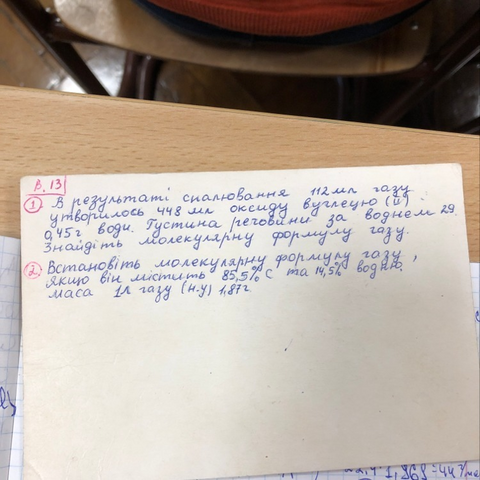 В. 13
① В результаті спалювання 112 мл газу
утворилось 448 мл оксиду вуглецю (IV) і
0,45 г води. Густина речовини за воднем 29.
Знайдіть молекулярну формулу газу.
② Встановіть молекулярну формулу газу,
якщо він містить 85,5% С та 14,5% водню.
Маса 1л газу (н.у) 1,87г